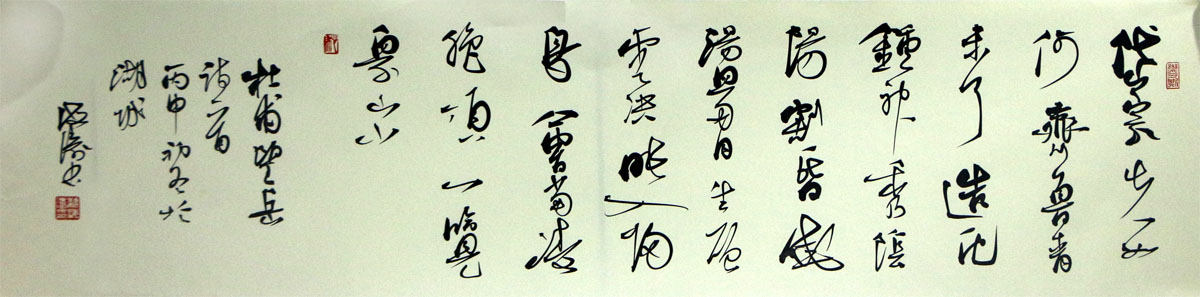 岱宗夫如
何齊魯青
未了造化
鍾神秀陰
陽割昏曉
蕩胸生層
雲決眥入歸
鳥會當凌
絕頂一覽
眾山小
杜甫望岳
詩一首
丙申初冬於
湖城